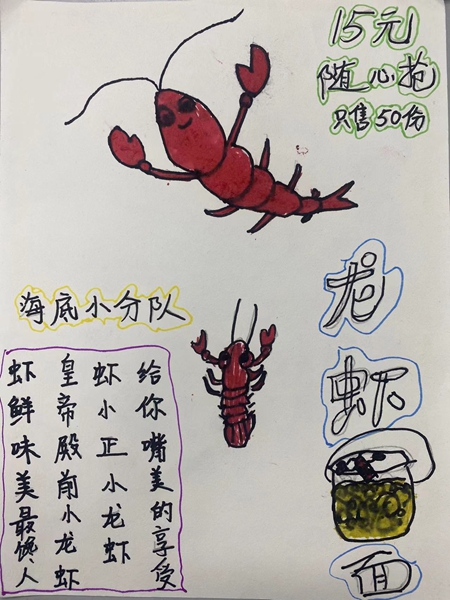 15元
随心抢
只售50份
海底小分队
虾鲜味美最馋人
皇帝殿前小龙虾
虾小正小龙虾
给你嘴美的享受
龙虾面